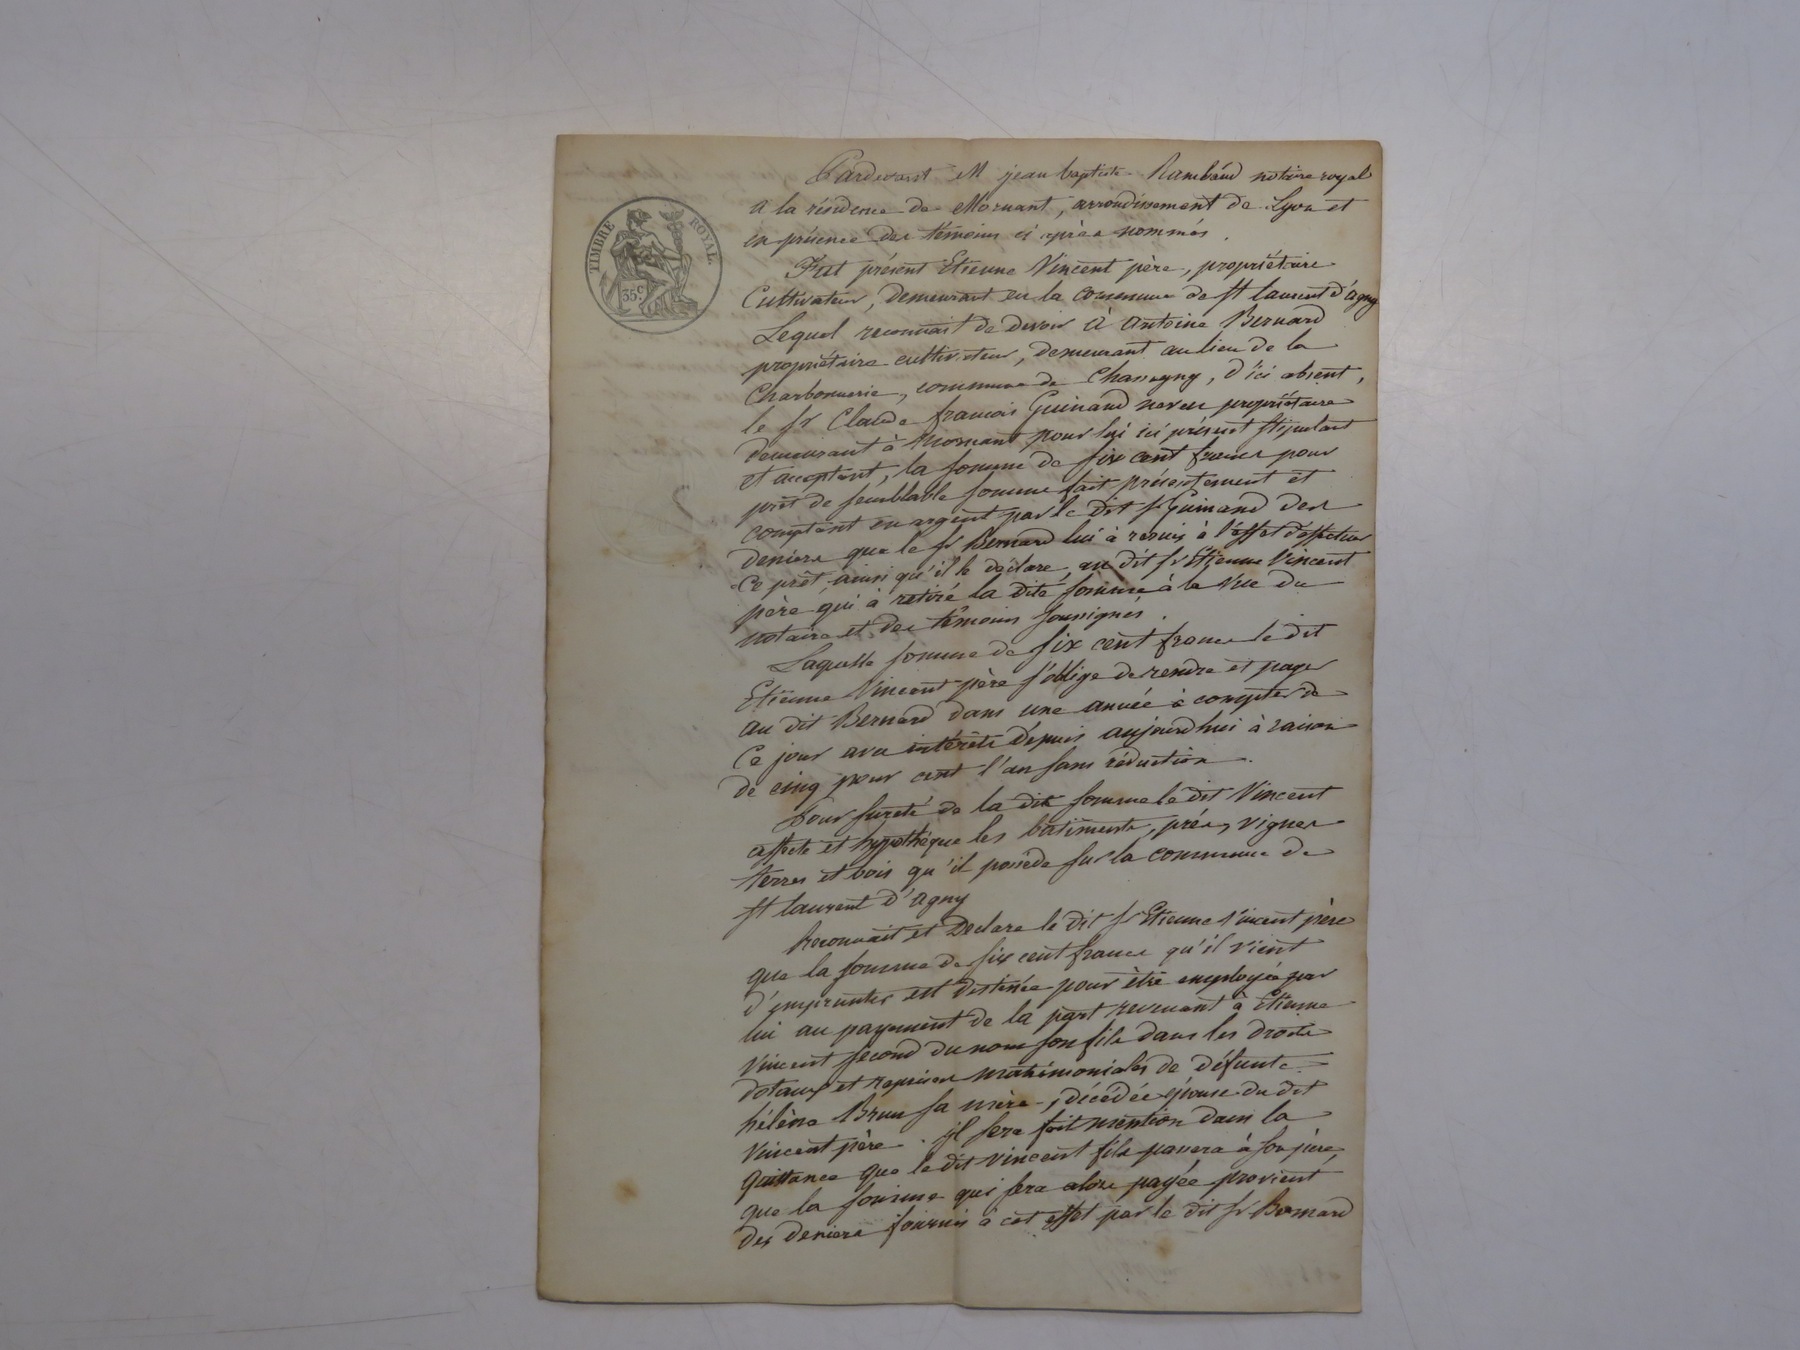 TIMBRE ROYAL.
35 c.
Pardevant M jean baptiste Rambaud notaire royal
a la résidence de Mornant, arrondissement de Lyon et
en présence des témoins ci après nommés.
Fut présent Etienne Vincent père, propriétaire
Cultivateur, demeurant en la commune de st laurent d'agny
Lequel reconnait de devoir à Antoine Bernard
propriétaire cultivateur, demeurant au lieu de la
Charbonnerie, commune de Chassagny, d'ici absent,
le sr Claude francois Guinand neveu propriétaire
demeurant à Mornant pour lui ici présent stipulant
et acceptant, la somme de six cent francs pour
prêt de semblable somme fait présentement et
comptant en argent par le dit sr Guinand des
deniers que le sr Bernard lui à remis à l'effet d'effectuer
Ce prêt ainsi qu'il le déclare, au dit sr Etienne Vincent
père qui à retiré la dite somme à la vue du
notaire et des témoins soussignés.
Laquelle somme de six cent francs le dit
Etienne Vincent père s'oblige de rendre et payer
au dit Bernard dans une année à compter de
Ce jour avec intérêts depuis aujourd'hui à raison
de cinq pour cent l'an sans réduction.
Pour sureté de la dite somme le dit Vincent
affecte et hypothèque les batiments, prés, vignes
terres et bois qu'il possède sur la commune de
st laurent d'agny
Reconnait et Déclare le dit sr Etienne Vincent père
que la somme de six cent francs qu'il vient
d'emprunter est destinée pour être employée par
lui au payement de la part revenant à Etienne
Vincent second du nom son fils dans les droits
dotaux et reprises matrimoniales de défunte
hélène Brun sa mère, décédée épouse du dit
Vincent père. il sera fait mention dans la
quittance que le dit Vincent fils passera à son père,
que la somme qui sera alors payée provient
des deniers fournis à cet effet par le dit sr Bernard